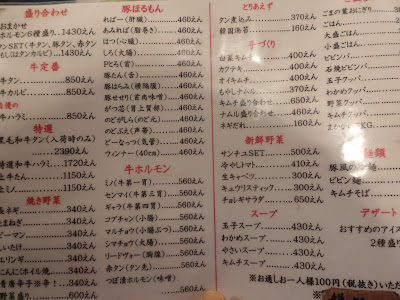 盛り合わせ
おまかせ
ホルモン6種盛り…1430えん
ンSET(牛タン、豚タン、赤タン
もしはタンカルビ)…1430えん
牛定番
牛タン……850えん
牛カルビ……850えん
特選
黒毛和牛タン(入荷時のみ)
…2390えん
特選和牛ハラミ…1720えん
上牛たん……1150えん
和牛ハラミ……1150えん
焼き野菜
長ネギ……350えん
たまねぎ……350えん
ピーマン……350えん
しいたけ……350えん
エリンギ……350えん
にんにくホイル焼…350えん
野菜盛り……600えん
豚ほるもん
ればー(肝臓)……460えん
あみれば(脂巻き)……460えん
はつ(心臓)……460えん
しろ(大腸)……460えん
Pとろ(首)……460えん
豚たん(舌)……460えん
豚はらみ(横隔膜)……460えん
豚せせり(首肉味噌)……460えん
がつ芯(胃上質部)……460えん
のどがしら(のど元)……460えん
のどぶえ(声帯)……460えん
どーなっつ(気管)……460えん
ウィンナー(40cm)……460えん
牛ホルモン
ミノ(牛第一胃)……560えん
センマイ(牛第三胃)……560えん
ギャラ(牛第四胃)……560えん
コプチャン(小腸)……560えん
マルチョウ(小腸ぶつ)…560えん
シマチョウ(大腸)……560えん
リードヴォー(胸腺)……560えん
赤タン(タン先)……560えん
つぼ漬ホルモン(味噌)…560えん
とりあえず
タン煮込み……370えん
韓国海苔……160えん
手づくり
白菜キムチ……400えん
カクテキ……400えん
オイキムチ……400えん
もやしナムル……350えん
キムチ盛り合わせ……600えん
ナムル盛り合わせ……600えん
ネギだれ……160えん
新鮮野菜
サンチュSET……500えん
冷やしトマト……410えん
生キャベツ……300えん
キュウリスティック……300えん
チョレギサラダ……650えん
スープ
玉子スープ……430えん
わかめスープ……430えん
やさいスープ……430えん
キムチスープ……430えん
※お通しお一人様100円(税抜き)
ごはん
ごまの葉おにぎり
大盛ご飯
小盛ご飯
ビビンバ
石焼ビビンバ
玉子クッパ
わかめクッパ
野菜クッパ
キムチクッパ
麺類
豚風の
ビビン麺
キムチそば
デザート
おすすめのアイス
2種盛り